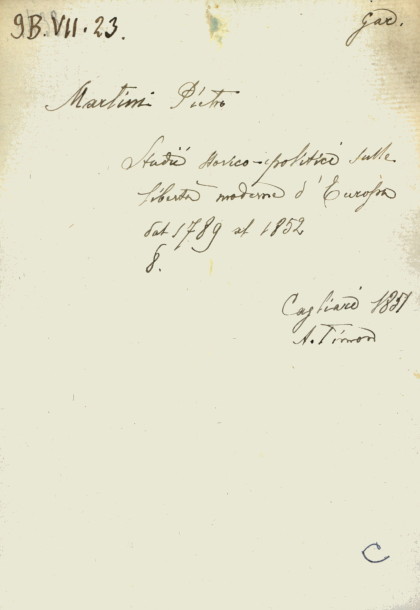 9B. VII. 23.
Gar.
Martini Pietro
Studii storico-politici sulle
libertà moderne d'Europa
dal 1789 al 1852
8.
Cagliari 1851
A. Timon
C